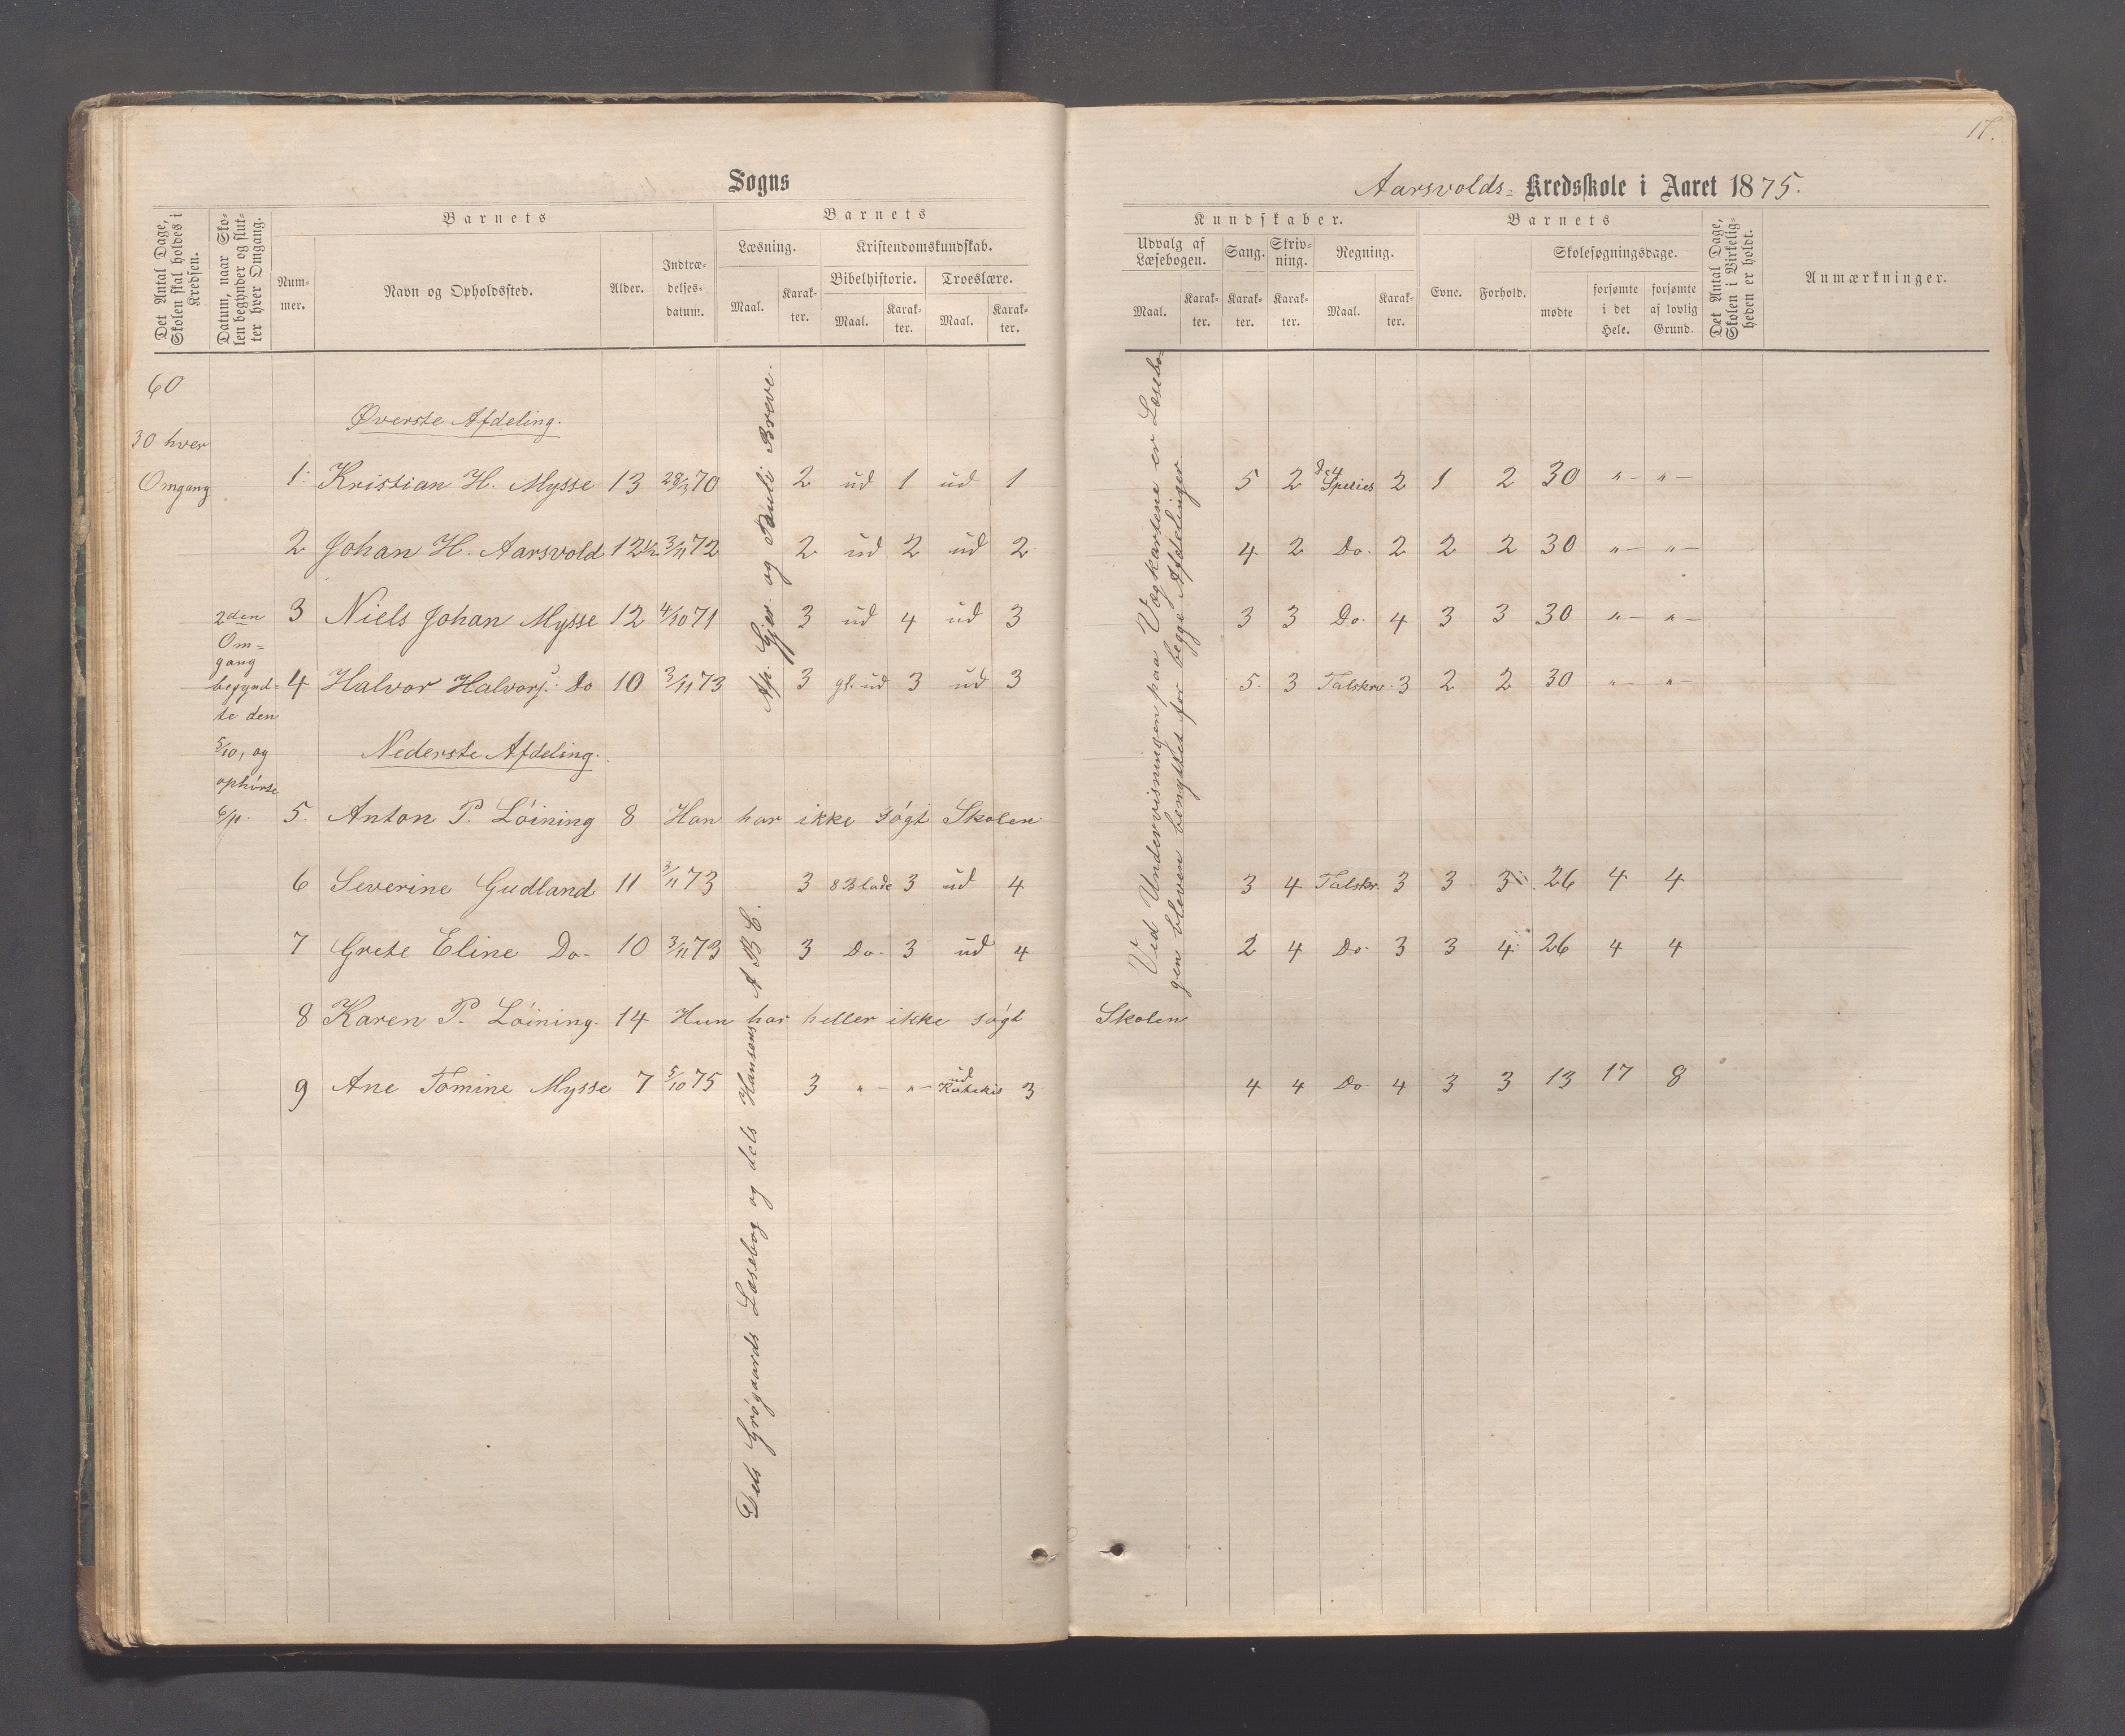 17.
Sogns
Aarsvolds- Kredsskole i Aaret 1875.
Det Antal Dage, Skolen skal holdes i Kredsen.
Datum, naar Skolen begynder og slutter hver Omgang.
Barnets
Nummer.
Navn og Opholdssted.
Alder.
Indtrædelsesdatum.
Barnets
Læsning.
Maal.
Karakter.
Kristendomskundskab.
Bibelhistorie.
Maal.
Karakter.
Troeslære.
Maal.
Karakter.
Kundskaber.
Udvalg af Læsebogen.
Maal.
Karakter.
Sang.
Karakter.
Skrivning.
Karakter.
Regning.
Maal.
Karakter.
Barnets
Evne.
Forhold.
Skolesøgningsdage.
mødte
forsømte i det Hele.
forsømte af lovlig Grund.
Det Antal Dage, Skolen i Virkeligheden er holdt.
Anmærkninger.
60
30 hver
Omgang
2den
Om=
gang
begynd=
te den
5/10, og
ophörte
6/11.
Øverste Afdeling.
1. Kristian H. Mysse 13 28/3 70 2 ud 1 ud 1 5 2 de 4 Species 2 1 2 30 „ – „ –
2 Johan H. Aarsvold 12 1/2 3/11 72 2 ud 2 ud 2 4 2 Do. 2 2 2 30 „ – „ –
3 Niels Johan Mysse 12 4/10 71 3 ud 4 ud 3 3 3 Do. 4 3 3 30 „ – „ –
4 Halvor Halvors. Do 10 3/11 73 3 gl. ud 3 ud 3 5. 3 Talskrv. 3 2 2 30 „ – „ –
Nederste Afdeling.
5. Anton P. Löining 8 Han har ikke sögt Skolen
6 Severine Gudland 11 3/11 73 3 8 Blade 3 ud 4 3 4 Talskr. 3 3 3 26 4 4
7 Grete Eline Do. 10 3/11 73 3 Do. 3 ud 4 2 4 Do. 3 3 4 26 4 4
8 Karen P. Löining. 14 Hun har heller ikke sögt Skolen
9 Ane Tomine Mysse 7 5/10 75 3 „ – „ – ud Katekis 3 4 4 Do. 4 3 3 13 17 8
Ap. Gjer. og Pauli Breve.
Dels Grögaards Læsebog og dels Hansens A B C.
Ved Undervisningen paa Vægkartene er Læsebo-
gen bleven benyttet for begge Afdelinger